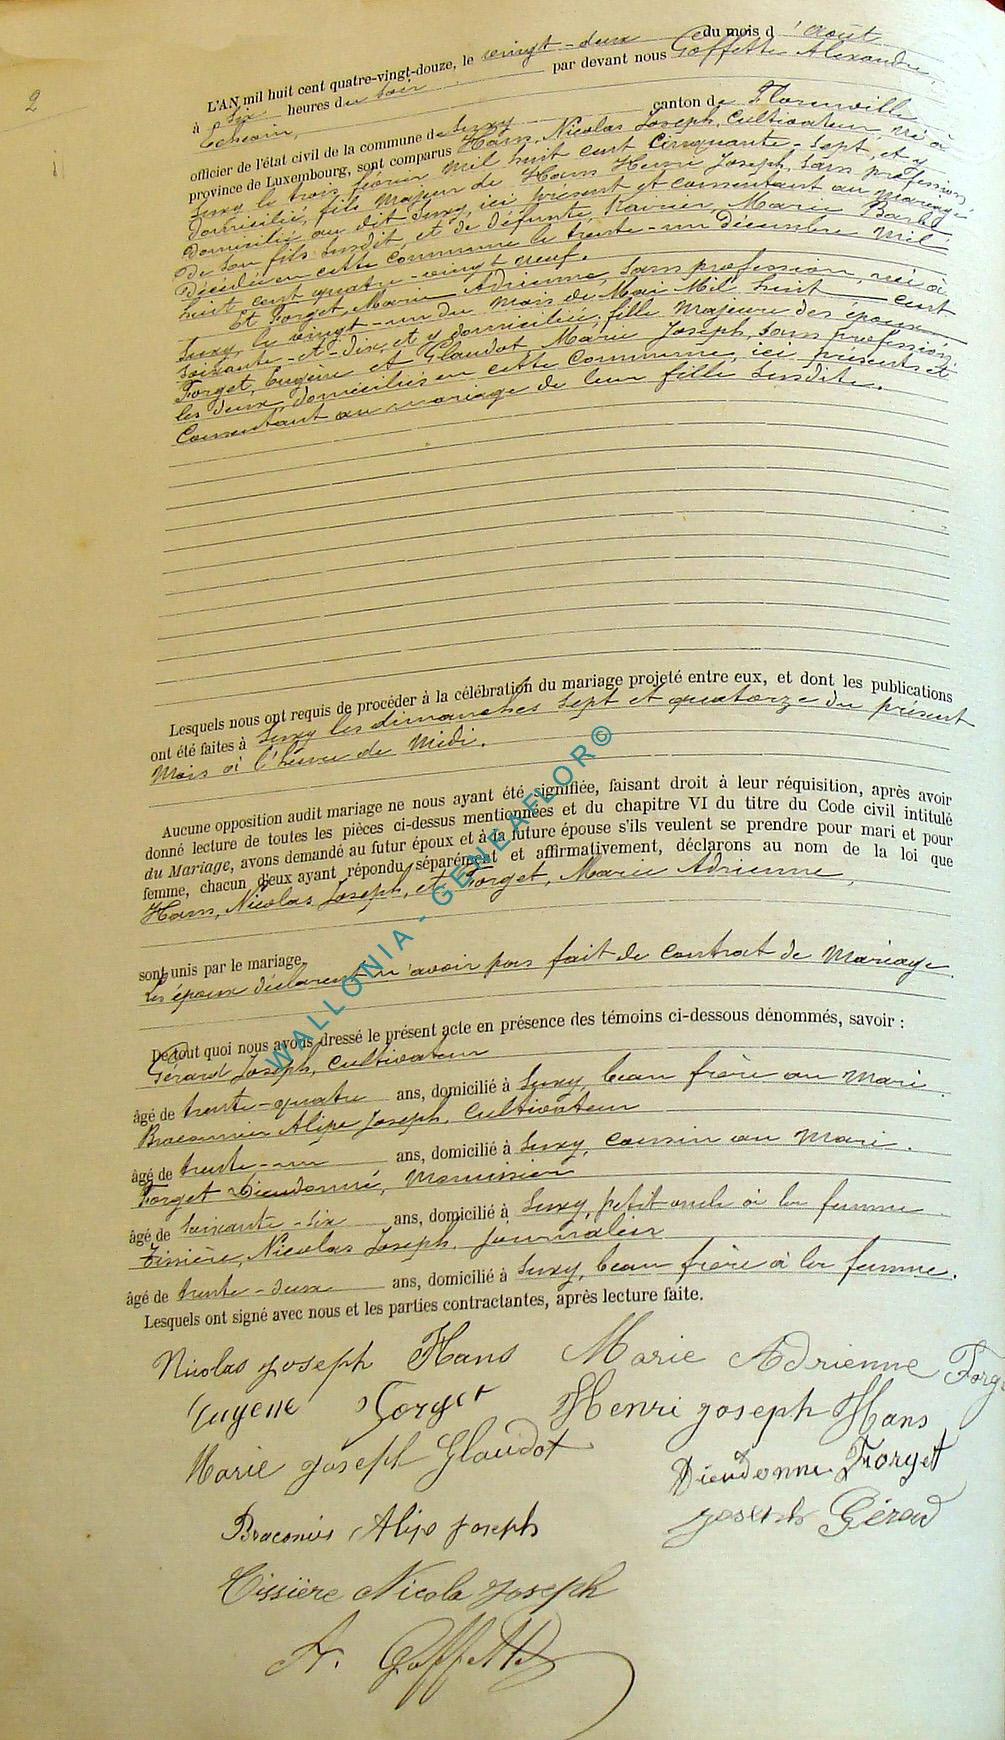 2
L'AN mil huit cent quatre-vingt-douze, le vingt-deux du mois d'Août
à six heures du soir par devant nous Goffette Alexandre,
Echevin,
officier de l'état civil de la commune de Suxy canton de Florenville
province de Luxembourg, sont comparus Hans, Nicolas Joseph, Cultivateur, né à
Suxy le trois février mil huit cent Cinquante-sept, et y
domicilié, fils majeur de Hans Henri Joseph, sans profession,
domicilié au dit Suxy, ici présent et consentant au mariage
de son fils susdit, et de défunte Marie Barbe
décédée en cette commune le trente-un Décembre mil
huit cent quatre-vingt neuf.
Et Forget, Marie Adrienne, sans profession, née à
Suxy, le vingt-un du mois de Mai Mil huit cent
soixante-et-dix, et y domiciliée, fille Majeure des époux
Forget, Eugène et Glaudot Marie Joseph, sans profession,
les deux domiciliés en cette Commune, ici présents et
Consentant au mariage de leur fille susdite.
Lesquels nous ont requis de procéder à la célébration du mariage projeté entre eux, et dont les publications
ont été faites à Suxy les dimanches sept et quatorze du présent
Mois à l'heure de Midi.
Aucune opposition audit mariage ne nous ayant été signifiée, faisant droit à leur réquisition, après avoir
donné lecture de toutes les pièces ci-dessus mentionnées et du chapitre VI du titre du Code civil intitulé
du Mariage, avons demandé au futur époux et à la future épouse s'ils veulent se prendre pour mari et pour
femme, chacun d'eux ayant répondu séparément et affirmativement, déclarons au nom de la loi que
Hans, Nicolas Joseph, et Forget, Marie Adrienne,
sont unis par le mariage.
Les époux déclarent n'avoir pas fait de contrat de Mariage.
De tout quoi nous avons dressé le présent acte en présence des témoins ci-dessous dénommés, savoir :
Gérard Joseph, Cultivateur
âgé de trente-quatre ans, domicilié à Suxy, beau frère au Mari.
Braconnier Alipe Joseph, Cultivateur
âgé de trente-un ans, domicilié à Suxy, cousin au Mari.
Forget Dieudonné, Menuisier
âgé de soixante-six ans, domicilié à Suxy, petit oncle à la femme
Tissière, Nicolas Joseph, journalier
âgé de trente-deux ans, domicilié à Suxy, beau frère à la femme.
Lesquels ont signé avec nous et les parties contractantes, après lecture faite.
Nicolas joseph Hans Marie Adrienne Forg
Eugene Forget Henri joseph Hans
Marie joseph Glaudot Dieudonne Forget
Braconier Alipe joseph joseph Gérard
Tissière Nicola joseph
A. Goffette
WALLONIA - GENEAFLOR ©